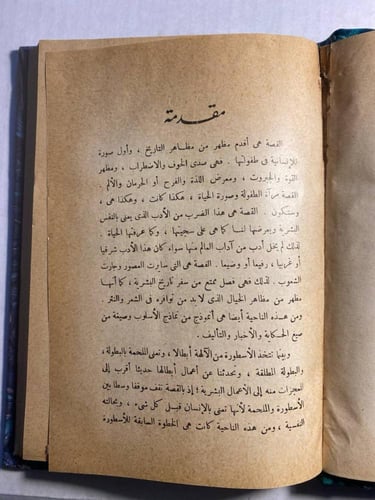 مقدمة
القصة هى أقدم مظهر من مظاهر التاريخ ، وأول صورة
للإنسانية فى طفولتها . فهى صدى الخوف والاضطراب ، ومظهر
القوة والجبروت ، ومعرض اللذة والفرح أو الحرمان والألم .
القصة مرآة الطفولة وصورة الحياة ، هكذا كانت ، وهكذا هى ،
وستكون . القصة هى هذا الضرب من الأدب الذى يعنى بالنفس
البشرية وبعرضها لنا كما هى على سجيتها ، وكما عرفتها الحياة .
لذلك لم يخل أدب من آداب العالم منها سواء كان هذا الأدب شرقيا
أو غربيا ، رفيعا أو وضيعا . القصة هى التى سايرت العصور وجارت
الشعوب . لذلك فهى فصل ممتع من سفر تاريخ البشرية ، كما أنها
مظهر من مظاهر الخيال الذى لابد من توافره فى الشعر والنثر .
ومن هذه الناحية أيضا هى أنموذج من نماذج الأسلوب وصيغة من
صيغ الحكاية والأخبار والتأليف .
وبينما تتخذ الأسطورة من الآلهة أبطالا ، وتعنى الملحمة بالبطولة ،
والبطولة المطلقة ، وتحدثنا عن أعمال أبطالها حديثا أقرب إلى
المعجزات منه إلى الأعمال البشرية ؛ إذ بالقصة تقف موقفا وسطا بين
الأسطورة والملحمة لأنها تعنى بالإنسان قبل كل شىء ، وبحالته
النفسية ، ومن هذه الناحية كانت هى الخطوة السابقة للأسطورة